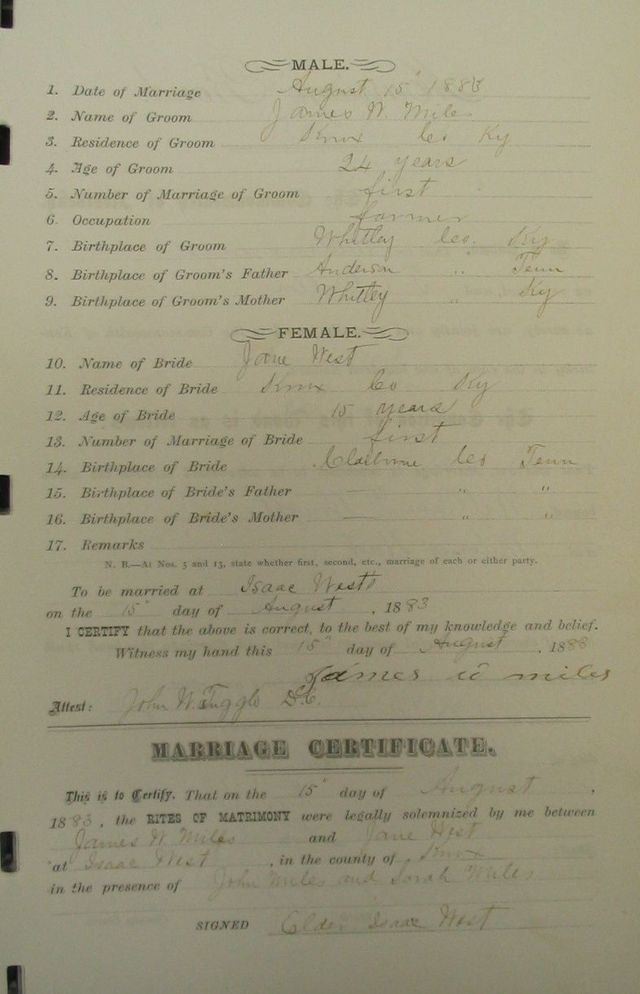 MALE.
1. Date of Marriage August 15" 1883
2. Name of Groom James W. Miles
3. Residence of Groom Knox Co Ky
4. Age of Groom 24 years
5. Number of Marriage of Groom first
6. Occupation farmer
7. Birthplace of Groom Whitley Co. Ky
8. Birthplace of Groom's Father Anderson " Tenn
9. Birthplace of Groom's Mother Whitley " Ky
FEMALE.
10. Name of Bride Jane West
11. Residence of Bride Knox Co Ky
12. Age of Bride 15 years
13. Number of Marriage of Bride first
14. Birthplace of Bride Claiborne Co Tenn
15. Birthplace of Bride's Father — " "
16. Birthplace of Bride's Mother — " "
17. Remarks
N. B.—At Nos. 5 and 13, state whether first, second, etc., marriage of each or either party.
To be married at Isaac West's
on the 15" day of August, 1883
I CERTIFY that the above is correct, to the best of my knowledge and belief.
Witness my hand this 15" day of August, 1883
James W miles
Attest: John W. Tuggle D.C.
MARRIAGE CERTIFICATE.
This is to Certify, That on the 15" day of August,
1883, the RITES OF MATRIMONY were legally solemnized by me between
James W Miles and Jane West
at Isaac West, in the county of Knox
in the presence of John Miles and Sarah Miles
SIGNED Elder Isaac West